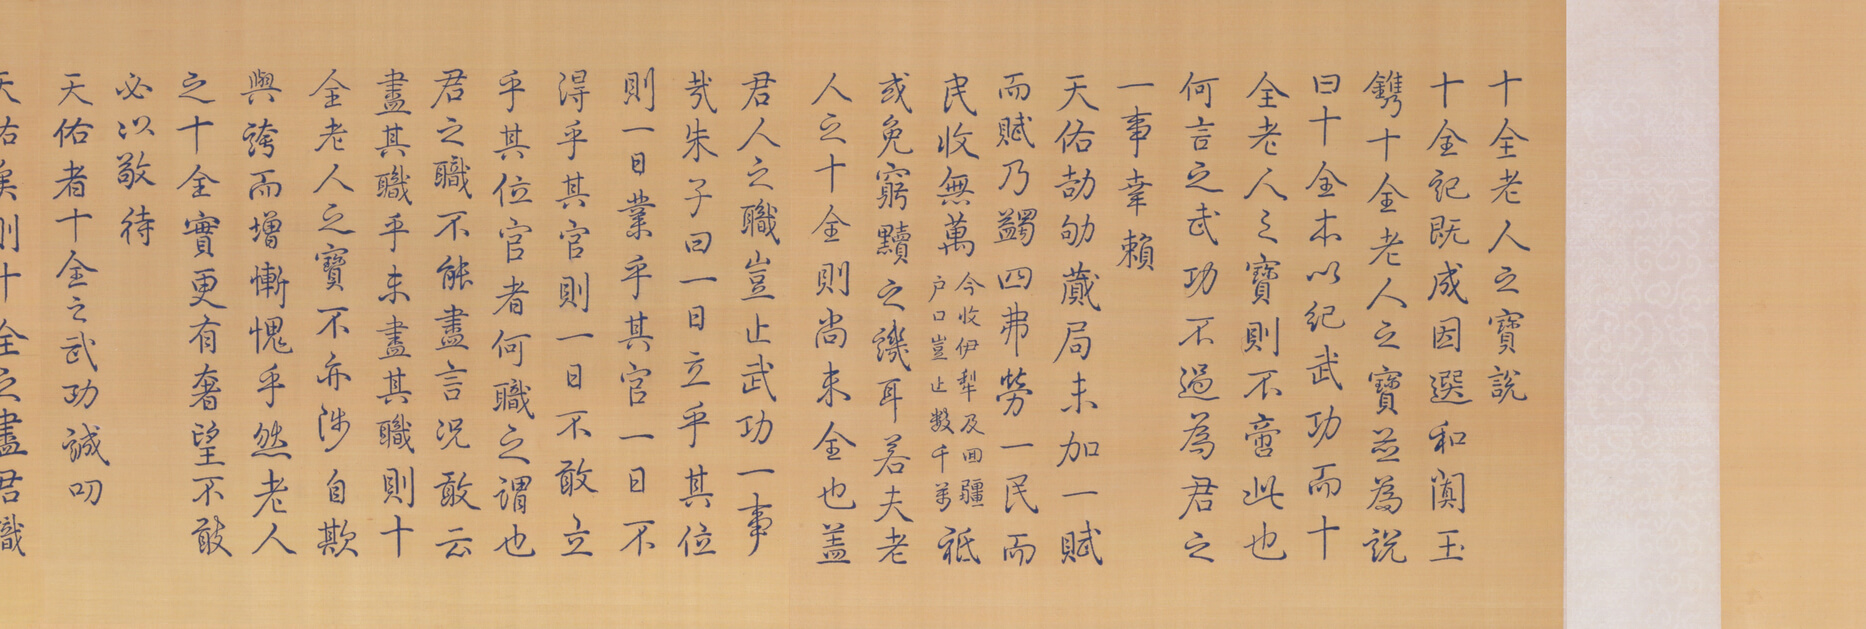 十全老人之寶說
十全記既成因選和闐玉
鐫十全老人之寶並為說
曰十全本以紀武功而十
全老人之寶則不啻此也
何言之武功不過為君之
一事幸賴
天佑劼劬蕆局未加一賦
而賦乃蠲四弗勞一民而
民收無萬今收伊犁及回疆
戶口豈止數千萬祗
或免窮黷之譏耳若夫老
人之十全則尚未全也蓋
君人之職豈止武功一事
哉朱子曰一日立乎其位
則一日業乎其官一日不
得乎其官則一日不敢立
乎其位官者何職之謂也
君之職不能盡言況敢云
盡其職乎未盡其職則十
全老人之寶不亦涉自欺
與誇而增慚愧乎然老人
之十全實更有奢望不敢
必以敬待
天佑者十全之武功誠叨
天佑矣則十全之盡君職